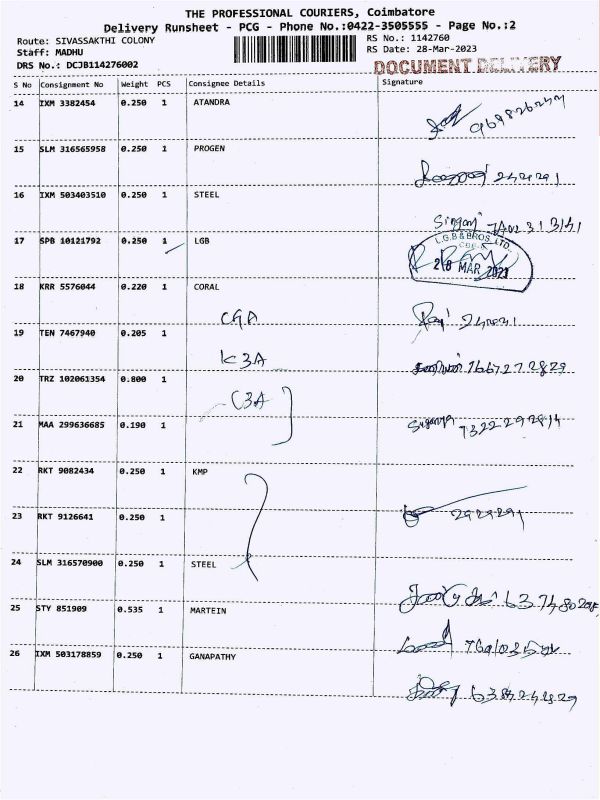 THE PROFESSIONAL COURIERS, Coimbatore
Delivery Runsheet - PCG - Phone No.:0422-3505555 - Page No.:2
Route: SIVASSAKTHI COLONY
RS No.: 1142760
Staff: MADHU
RS Date: 28-Mar-2023
DRS No.: DCJB114276002
DOCUMENT DELIVERY
S No Consignment No Weight PCS Consignee Details Signature
14 IXM 3382454 0.250 1 ATANDRA
15 SLM 316565958 0.250 1 PROGEN
16 IXM 503403510 0.250 1 STEEL
17 SPB 10121792 0.250 1 LGB
L.G.B & BROS. LTD.,
28 MAR 2023
18 KRR 5576044 0.220 1 CORAL
CGA
19 TEN 7467940 0.205 1
K3A
20 TRZ 102061354 0.800 1
C3A
21 MAA 299636685 0.190 1
22 RKT 9082434 0.250 1 KMP
23 RKT 9126641 0.250 1
24 SLM 316570900 0.250 1 STEEL
25 STY 851909 0.535 1 MARTEIN
26 IXM 503178859 0.250 1 GANAPATHY